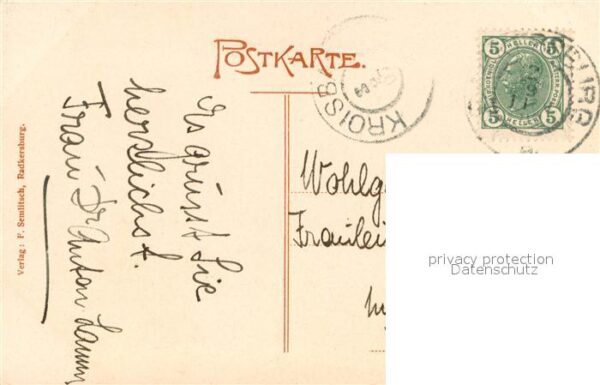 POSTKARTE.
5 HELLER 5
5 HELLER 5
KROISB
Verlag: F. Semlitsch, Radkersburg.
Es grüsst Sie
herzlichst.
Frau Dr Anton
Wohlg
Fräulei
privacy protection
Datenschutz